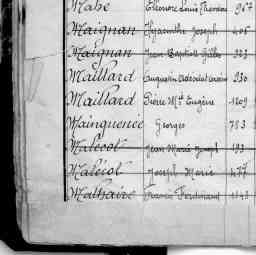 Mabe Eléonore Louis Théodore 967
Maignan Hyacinthe Joseph 406
Maignan Jean Baptiste Gilles 323
Maillard Augustin 230
Maillard Pierre Mie Eugène 1209
Mainguenée Georges 783
Malécot Jean Marie Joseph 193
Malécot Joseph Marie 477
Malhaire Francis Ferdinand